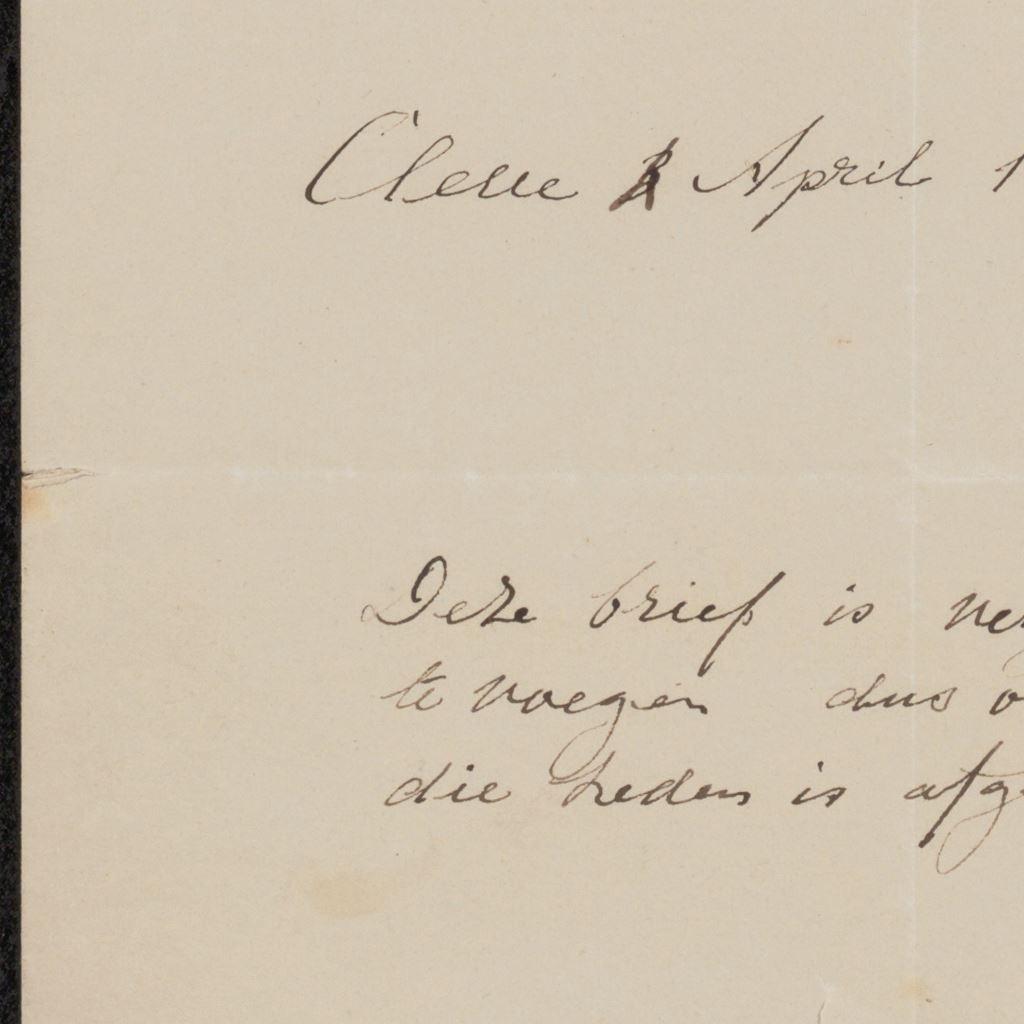 Cleve April 1
Deze brief is ver
te voegen dus o
die heden is afge